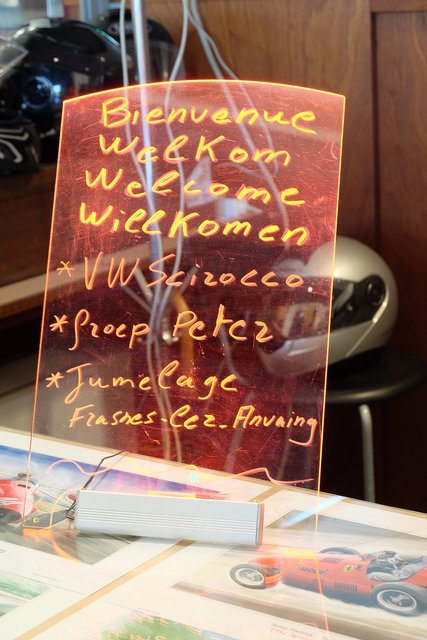 Bienvenue
Welkom
Welcome
Willkomen
* VW Scirocco
* Groep Peter
* Jumelage
Frasnes-Lez-Anvaing